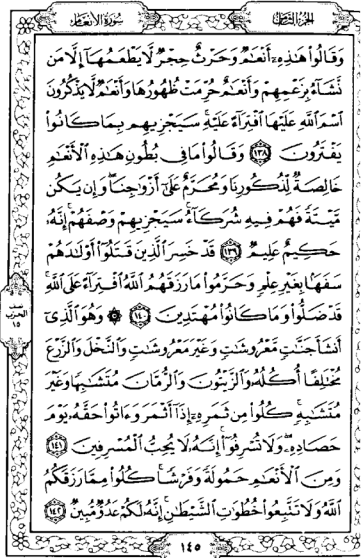 سورة الأنعام
الجزء الثامن
وَقَالُوا۟ هَـٰذِهِۦٓ أَنْعَـٰمٌ وَحَرْثٌ حِجْرٌ لَّا يَطْعَمُهَآ إِلَّا مَن
نَّشَآءُ بِزَعْمِهِمْ وَأَنْعَـٰمٌ حُرِّمَتْ ظُهُورُهَا وَأَنْعَـٰمٌ لَّا يَذْكُرُونَ
ٱسْمَ ٱللَّهِ عَلَيْهَا ٱفْتِرَآءً عَلَيْهِ ۚ سَيَجْزِيهِم بِمَا كَانُوا۟
يَفْتَرُونَ ١٣٨ وَقَالُوا۟ مَا فِى بُطُونِ هَـٰذِهِ ٱلْأَنْعَـٰمِ
خَالِصَةٌ لِّذُكُورِنَا وَمُحَرَّمٌ عَلَىٰٓ أَزْوَٰجِنَا ۖ وَإِن يَكُن
مَّيْتَةً فَهُمْ فِيهِ شُرَكَآءُ ۚ سَيَجْزِيهِمْ وَصْفَهُمْ ۚ إِنَّهُۥ
حَكِيمٌ عَلِيمٌ ١٣٩ قَدْ خَسِرَ ٱلَّذِينَ قَتَلُوٓا۟ أَوْلَـٰدَهُمْ
سَفَهًۢا بِغَيْرِ عِلْمٍ وَحَرَّمُوا۟ مَا رَزَقَهُمُ ٱللَّهُ ٱفْتِرَآءً عَلَى ٱللَّهِ ۚ
قَدْ ضَلُّوا۟ وَمَا كَانُوا۟ مُهْتَدِينَ ١٤٠ ۞ وَهُوَ ٱلَّذِىٓ
أَنشَأَ جَنَّـٰتٍ مَّعْرُوشَـٰتٍ وَغَيْرَ مَعْرُوشَـٰتٍ وَٱلنَّخْلَ وَٱلزَّرْعَ
مُخْتَلِفًا أُكُلُهُۥ وَٱلزَّيْتُونَ وَٱلرُّمَّانَ مُتَشَـٰبِهًا وَغَيْرَ
مُتَشَـٰبِهٍ ۚ كُلُوا۟ مِن ثَمَرِهِۦٓ إِذَآ أَثْمَرَ وَءَاتُوا۟ حَقَّهُۥ يَوْمَ
حَصَادِهِۦ ۖ وَلَا تُسْرِفُوٓا۟ ۚ إِنَّهُۥ لَا يُحِبُّ ٱلْمُسْرِفِينَ ١٤١
وَمِنَ ٱلْأَنْعَـٰمِ حَمُولَةً وَفَرْشًا ۚ كُلُوا۟ مِمَّا رَزَقَكُمُ
ٱللَّهُ وَلَا تَتَّبِعُوا۟ خُطُوَٰتِ ٱلشَّيْطَـٰنِ ۚ إِنَّهُۥ لَكُمْ عَدُوٌّ مُّبِينٌ ١٤٢
نصف
الحزب
١٥
١٤٥